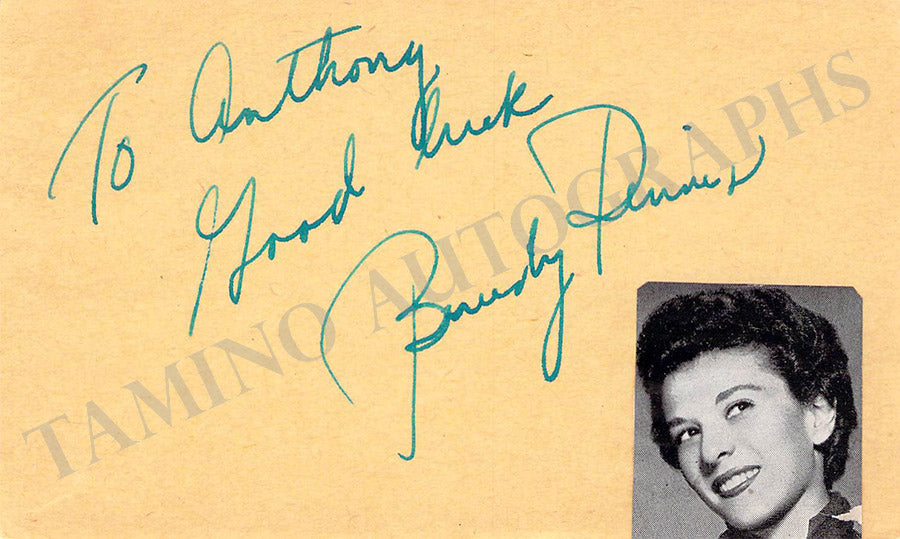 To Anthony
Good luck
Beverly Dennis
TAMINO AUTOGRAPHS